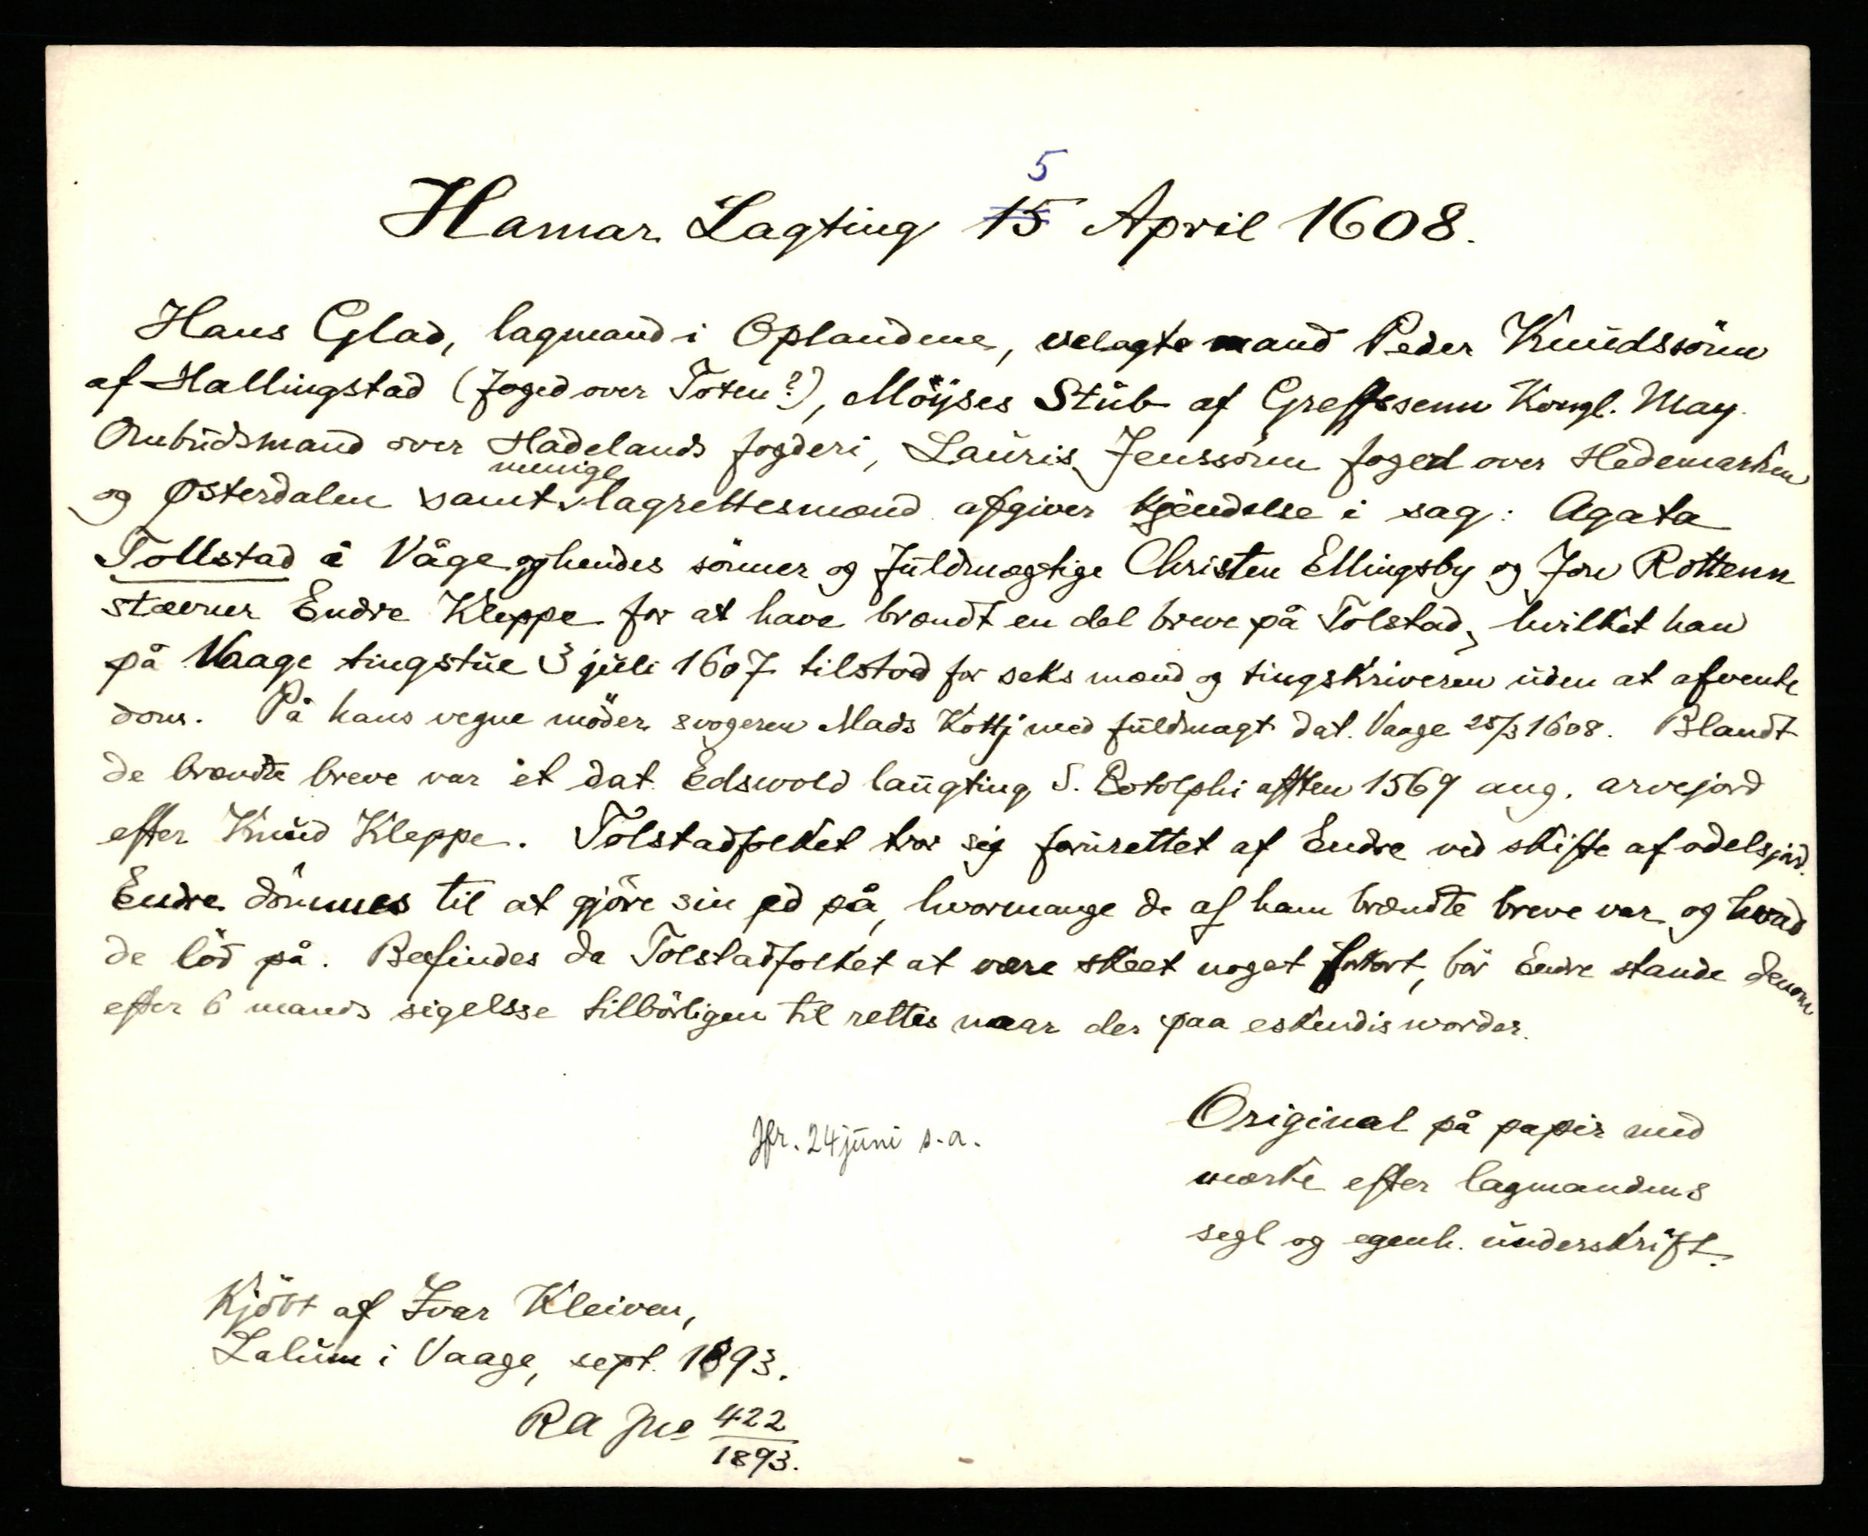 5
Hamar Lagting 15 April 1608.
Hans Glad, lagmand i Oplandene, velagte mand Peder Knudssönn
af Hallingstad (foged over Toten?), Möÿses Stub af Greffssenn Kongl. May.
Ombudsmand over Hadelands fogderi, Lauris Jenssönn foged over Hedemarken
menige
og Østerdalen samt lagrettesmænd afgiver kjendelse i sag: Agata
Tollstad å Våge og hendes sönner og fuldmægtige Christen Ellingsby og Jon Rottenn
stævner Endre Kleppe for at have brændt en del breve på Tolstad, hvilket han
på Vaage tingstue 3 juli 1607 tilstod for seks mænd og tingskriveren uden at afvente
dom. På hans vegne möder svogeren Mads Kottj med fuldmagt dat. Vaage 25/3 1608. Blandt
de brændte breve var et dat. Edswold laugting S. Botolphi afften 1569 ang. arvejord
efter Knud Kleppe. Tolstadfolket tror sig forurettet af Endre ved skifte af odelsjord.
Endre dömmes til at gjöre sin ed på, hvormange de af ham brændte breve var og hvad
de löd på. Befindes da Tolstadfolket at være skeet noget forkort, bör Endre stande denom
efter 6 mands sigelsse tilbörligen til rettis naar der paa eskendis worder.
Original på papir med
mærke efter lagmandens
segl og egenh. underskrift.
Jfr. 24 juni s.a.
Kjöbt af Ivar Kleiven,
Lalum i Vaage, sept. 1893.
RA Jno 422
1893.